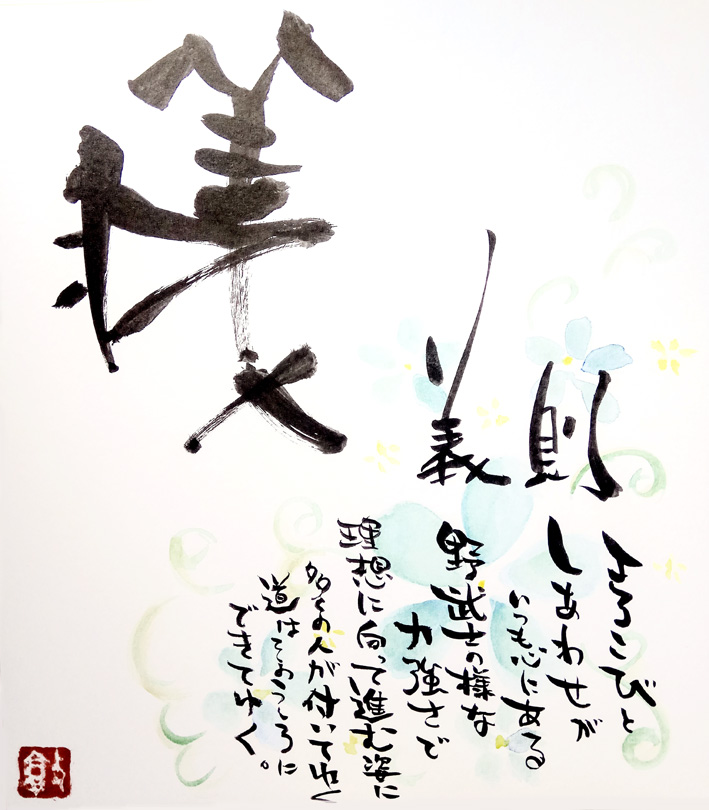 義
義則
よろこびと
しあわせが
いつも心にある
野武士の様な
力強さで
理想に向って進む姿に
多くの人が付いてゆく
道はそのうしろに
できてゆく。